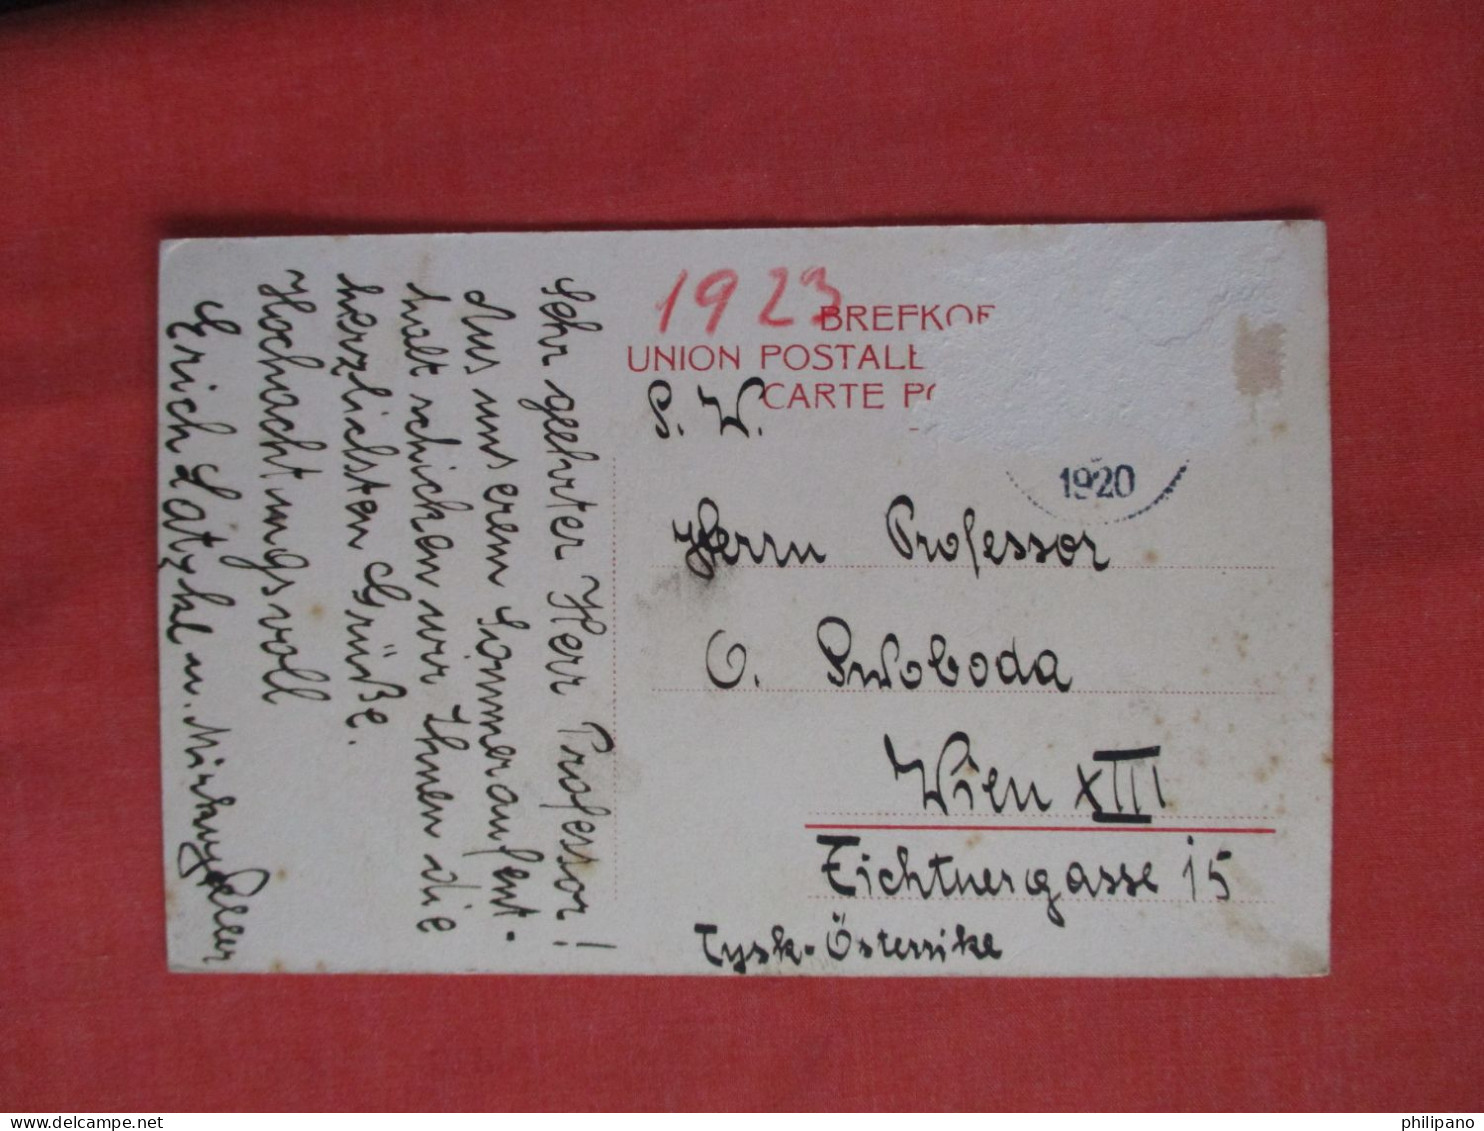 1923
BREFKOR
UNION POSTALE
CARTE PO
1920
S. W.
Herrn Professor
O. Swoboda
Wien XIII
Fichtnergasse 15
Tysk-Österrike
Sehr geehrter Herr Professor!
Aus unserem Sommeraufent-
halt schicken wir Ihnen die
herzlichsten Grüße.
Hochachtungsvoll
Erich Látzkel u.
philipano